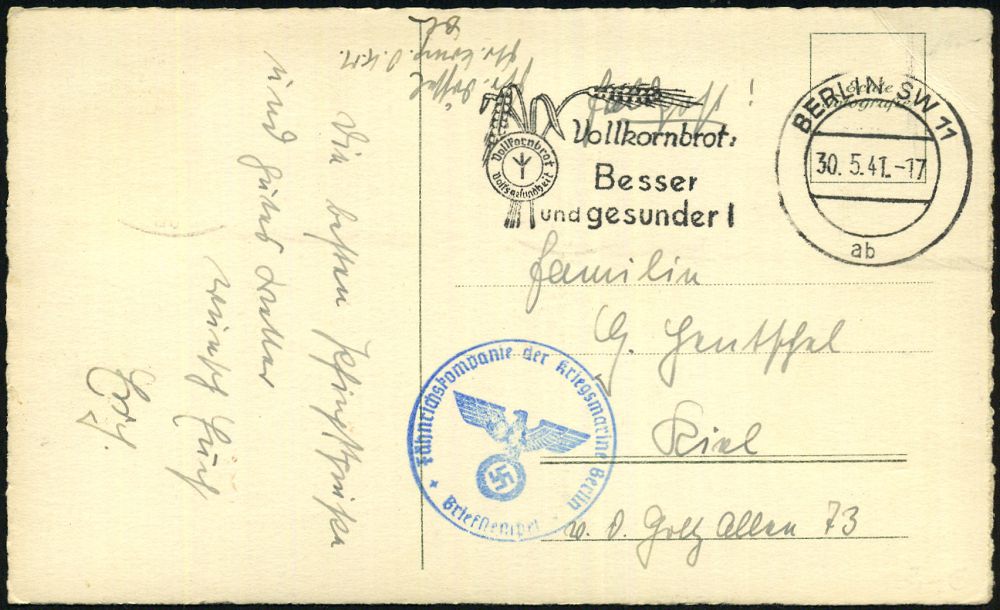 Die besten Pfingstgrüße
und gutes Wetter
wünscht Euch
Feldpost!
Echte
Vollkornbrot
Volksgesundheit
Vollkornbrot:
Besser
und gesunder!
BERLIN SW 11
30. 5.41.-17
ab
Familie
G. Hentschel
Kiel
v. d. Goltz Allee 73
Fähnrichskompanie der Kriegsmarine Berlin
Briefstempel